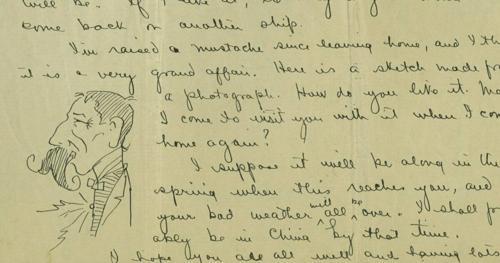 will be. If I
come back on another ship.
I've raised a mustache since leaving home, and I th
it is a very grand affair. Here is a sketch made fr
a photograph. How do you like it. Ma
I come to visit you with it when I com
home again?
I suppose it will be along in the
spring when this reaches you, and
your bad weather will all be over. I shall pr
ably be in China by that time.
I hope you are all well and having lots